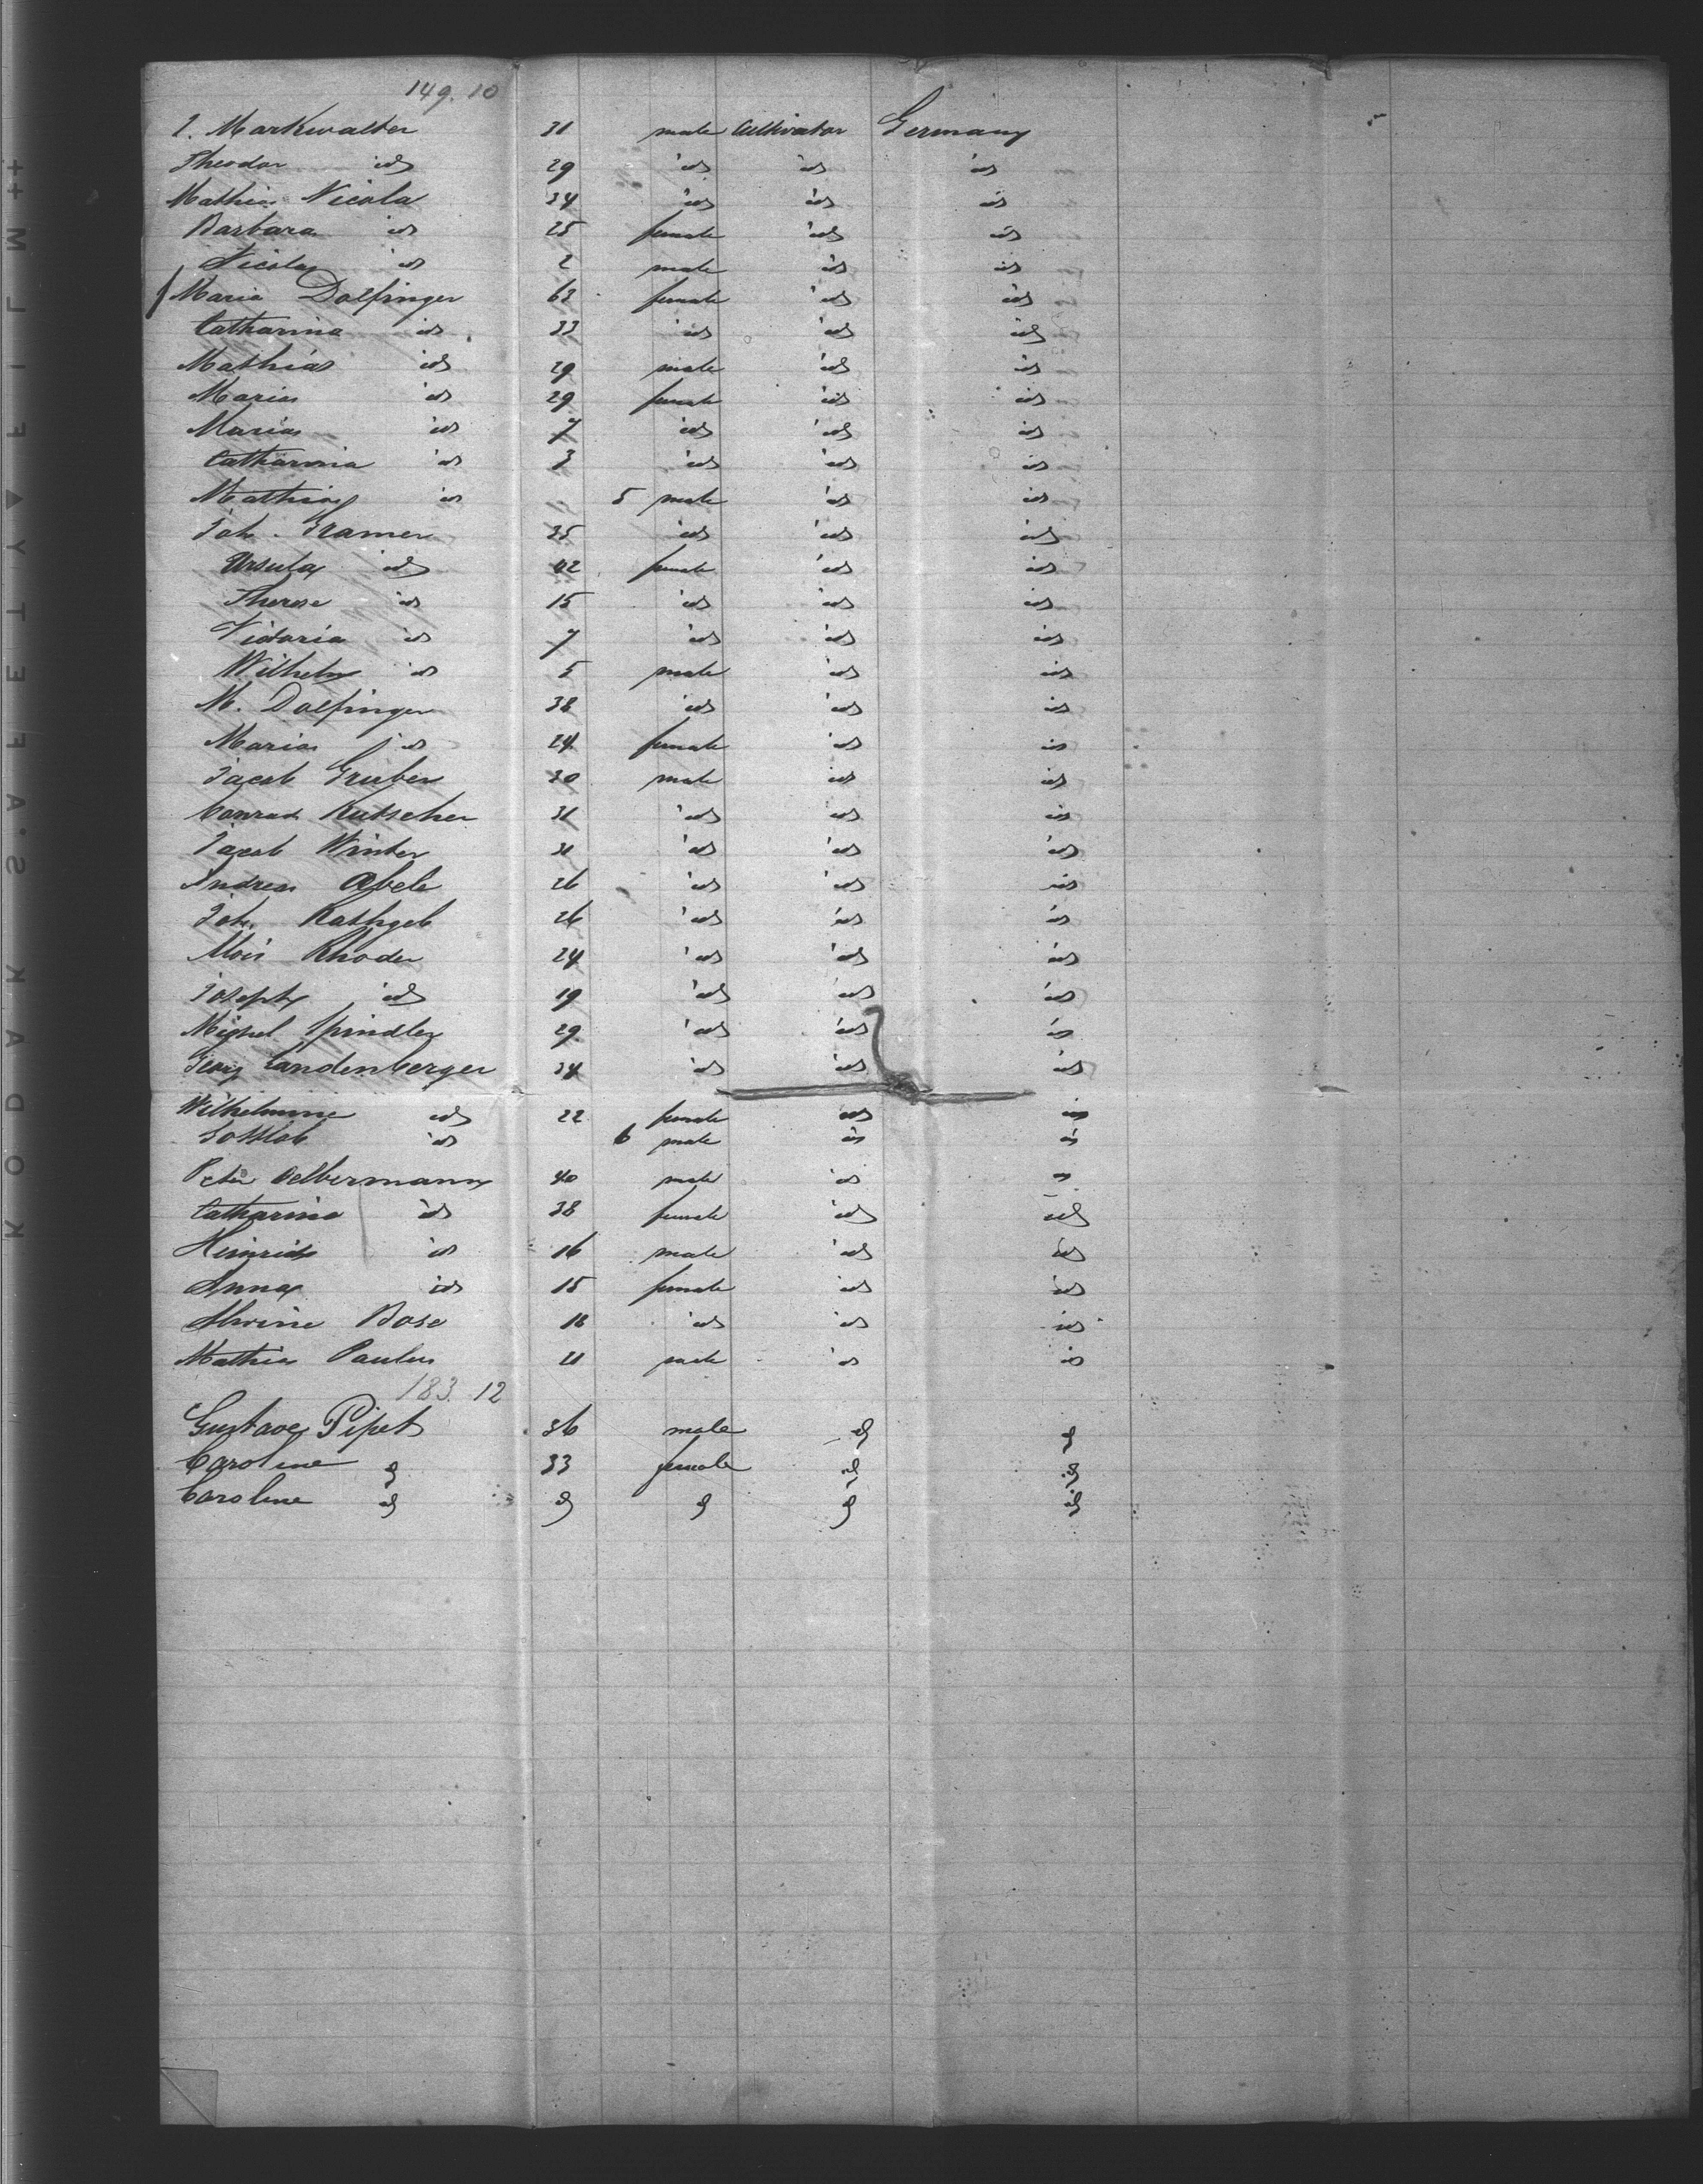 149. 10
J. Markwalter 31 male Cultivator Germany
Theodor id 29 id id id
Mathias Nicola 34 id id id
Barbara id 25 female id id
Nicolas id 2 male id id
Maria Dolfinger 63 female id id
Catharina id 33 id id id
Mathias id 29 male id id
Maria id 29 female id id
Maria id 7 id id id
Catharina id 3 id id id
Mathias id 5 male id id
Joh. Gramer 35 id id id
Ursula id 42 female id id
Therese id 15 id id id
Victoria id 7 id id id
Wilhelm id 5 male id id
M. Dolfinger 38 id id id
Maria id 24 female id id
Jacob Gruber 30 male id id
Conrad Kutscher 31 id id id
Jacob Winter 31 id id id
Andreas Abele 26 id id id
Joh. Rathgeb 26 id id id
Alois Rhoder 24 id id id
Joseph id 19 id id id
Michel Spindler 29 id id id
Georg Landenberger 34 id id id
Wilhelmine id 22 female id id
Gottlob id 6 male id id
Peter Oelbermann 40 male id id
Catharina id 38 female id id
Heinrich id 16 male id id
Anna id 15 female id id
Alwine Bose 18 id id id
Mathias Paulus 21 male id id
183. 12
Gustave Pipet 36 male id id
Caroline id 33 female id id
Caroline id id id id id
KODAK·S'AFETY▲FILM++